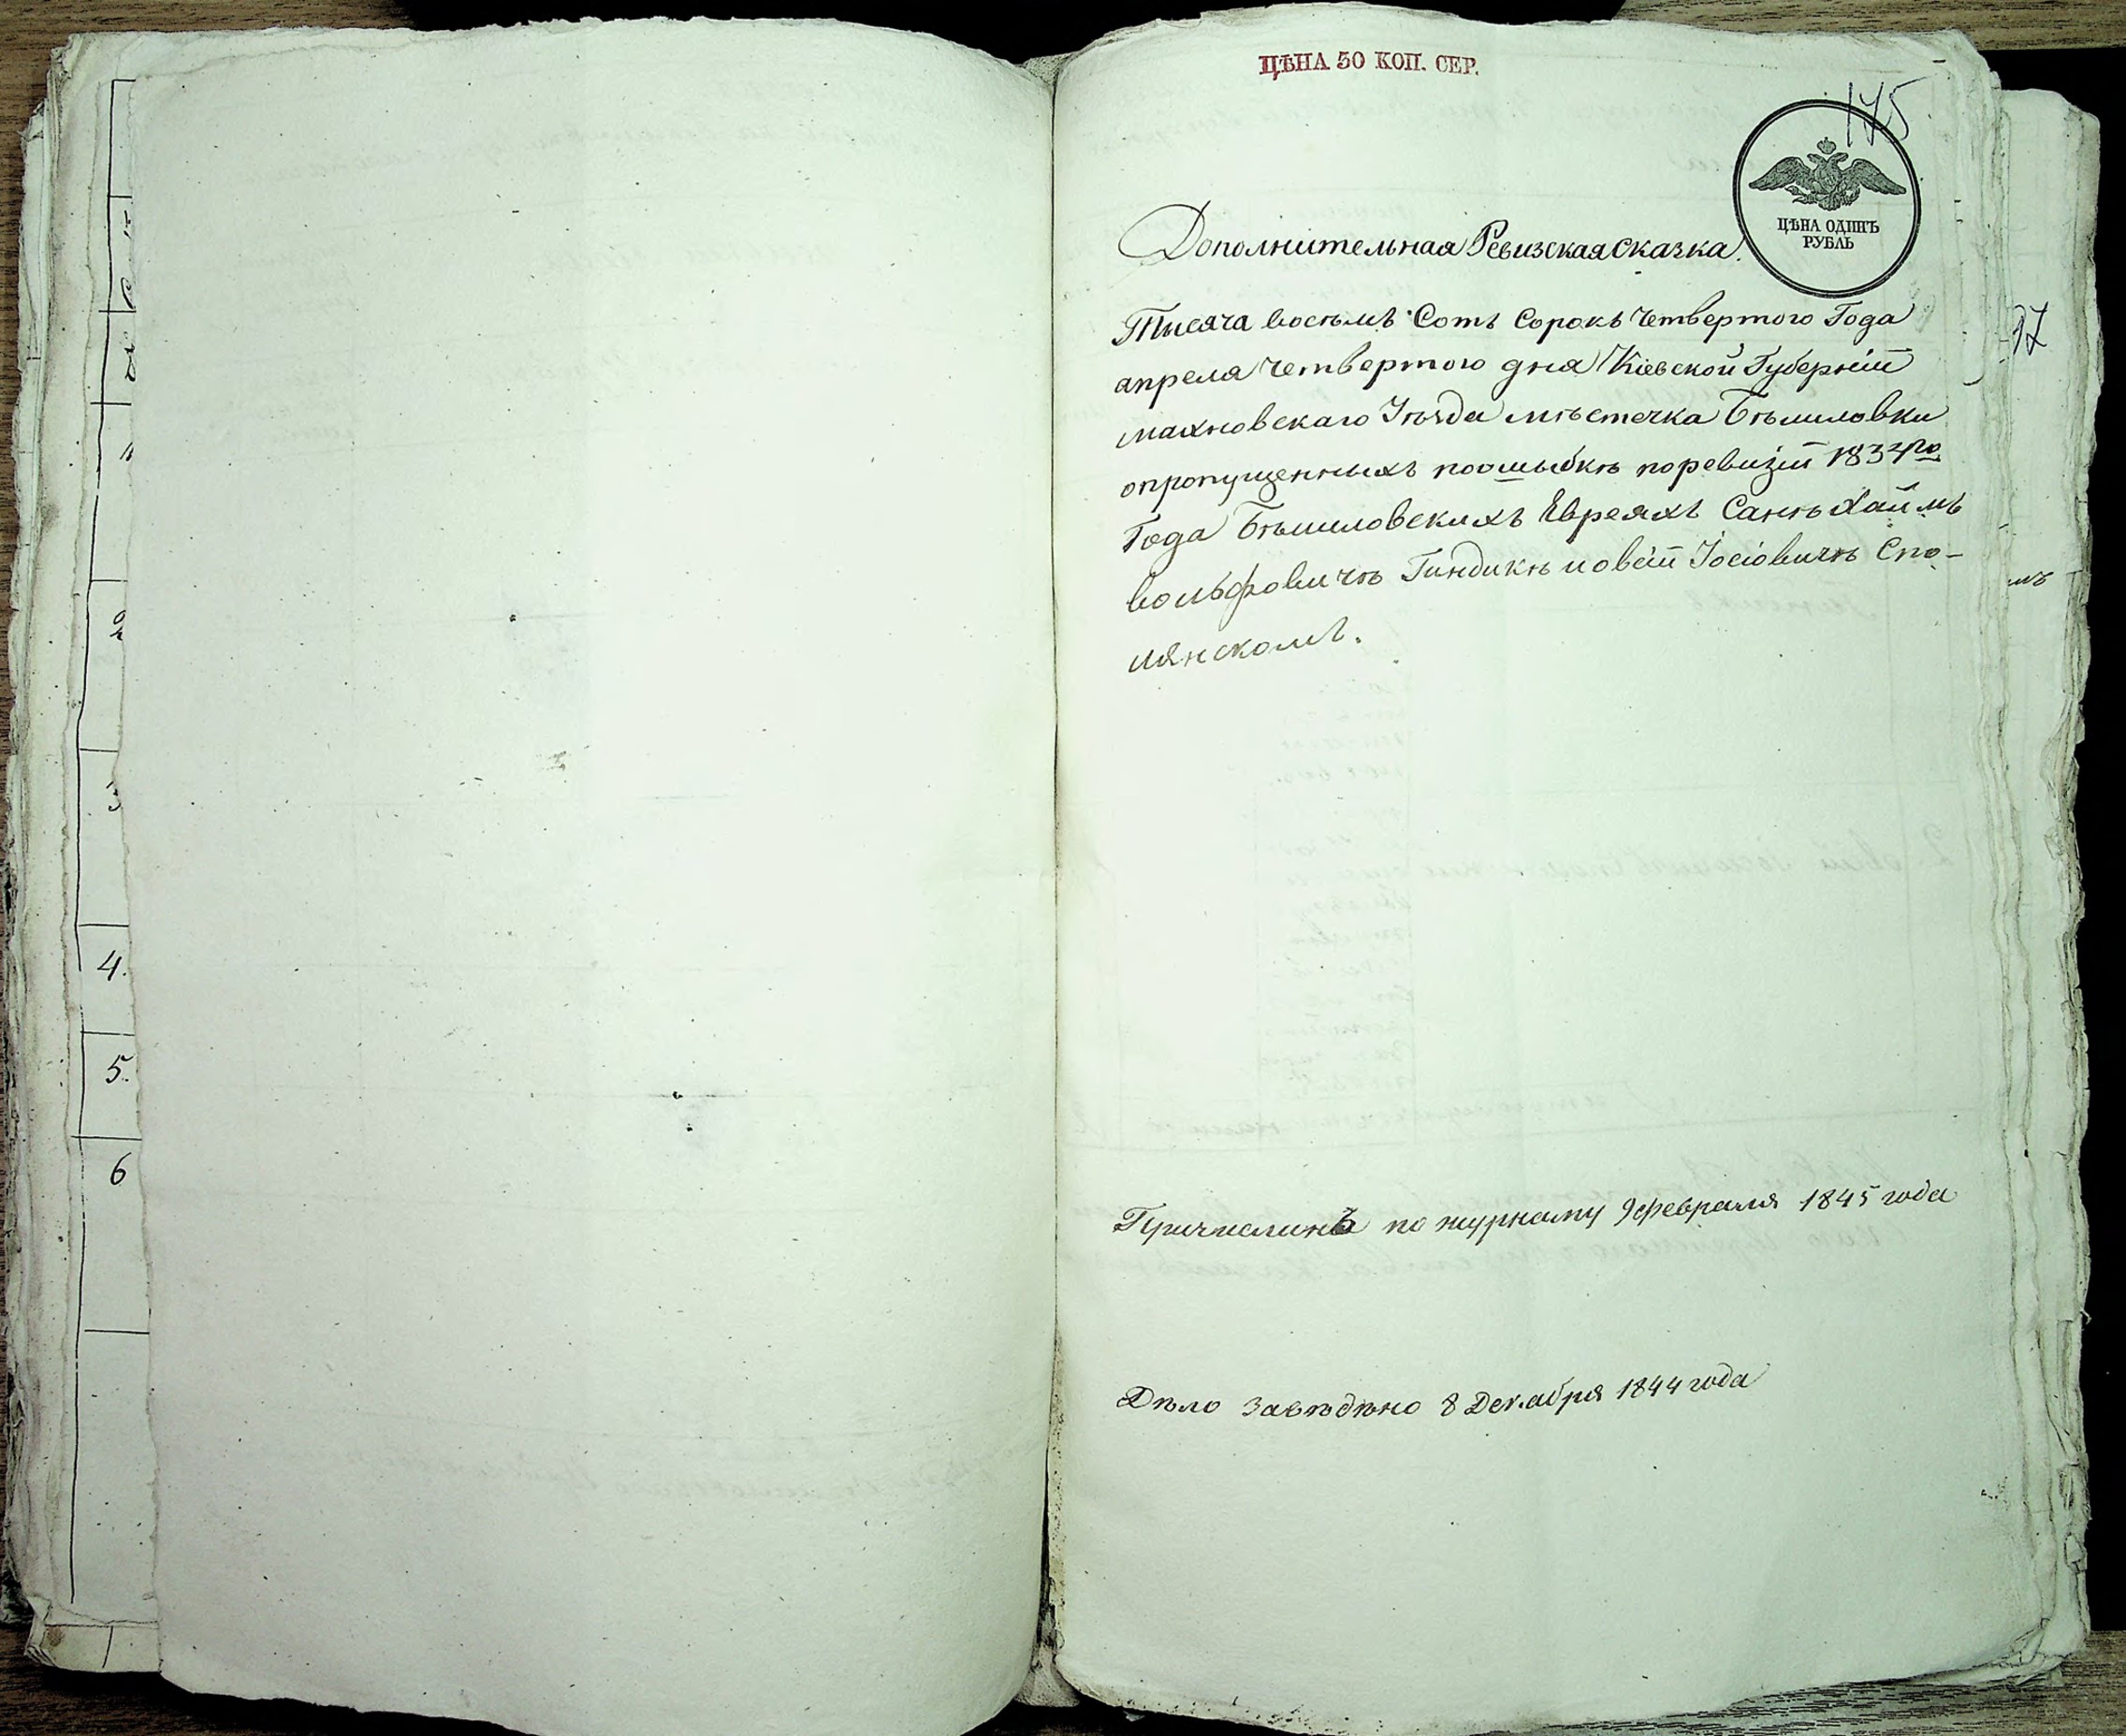 ЦѢНА 50 КОП. СЕР.
175
ЦѢНА ОДИНЪ
РУБЛЬ
Дополнительная Ревизская Сказка.
Тысяча восемь Сотъ Сорокъ Четвертого Года
апреля Четвертого дня Кіевской Губерніи
махновскаго Уѣзда мѣстечка Бѣлиловки
опропущенныхъ поошыбкѣ поревизіи 1834го
Года Бѣлиловскихъ Евреяхъ Санѣ Хаймъ
вольфовичѣ Гиндикѣ иовсіи Іосіовичѣ Спо-
лянскомъ.
Причисленъ по журналу 9 февраля 1845 года
Дѣло Завѣдѣно 8 Декабря 1844 года
4.
5.
6